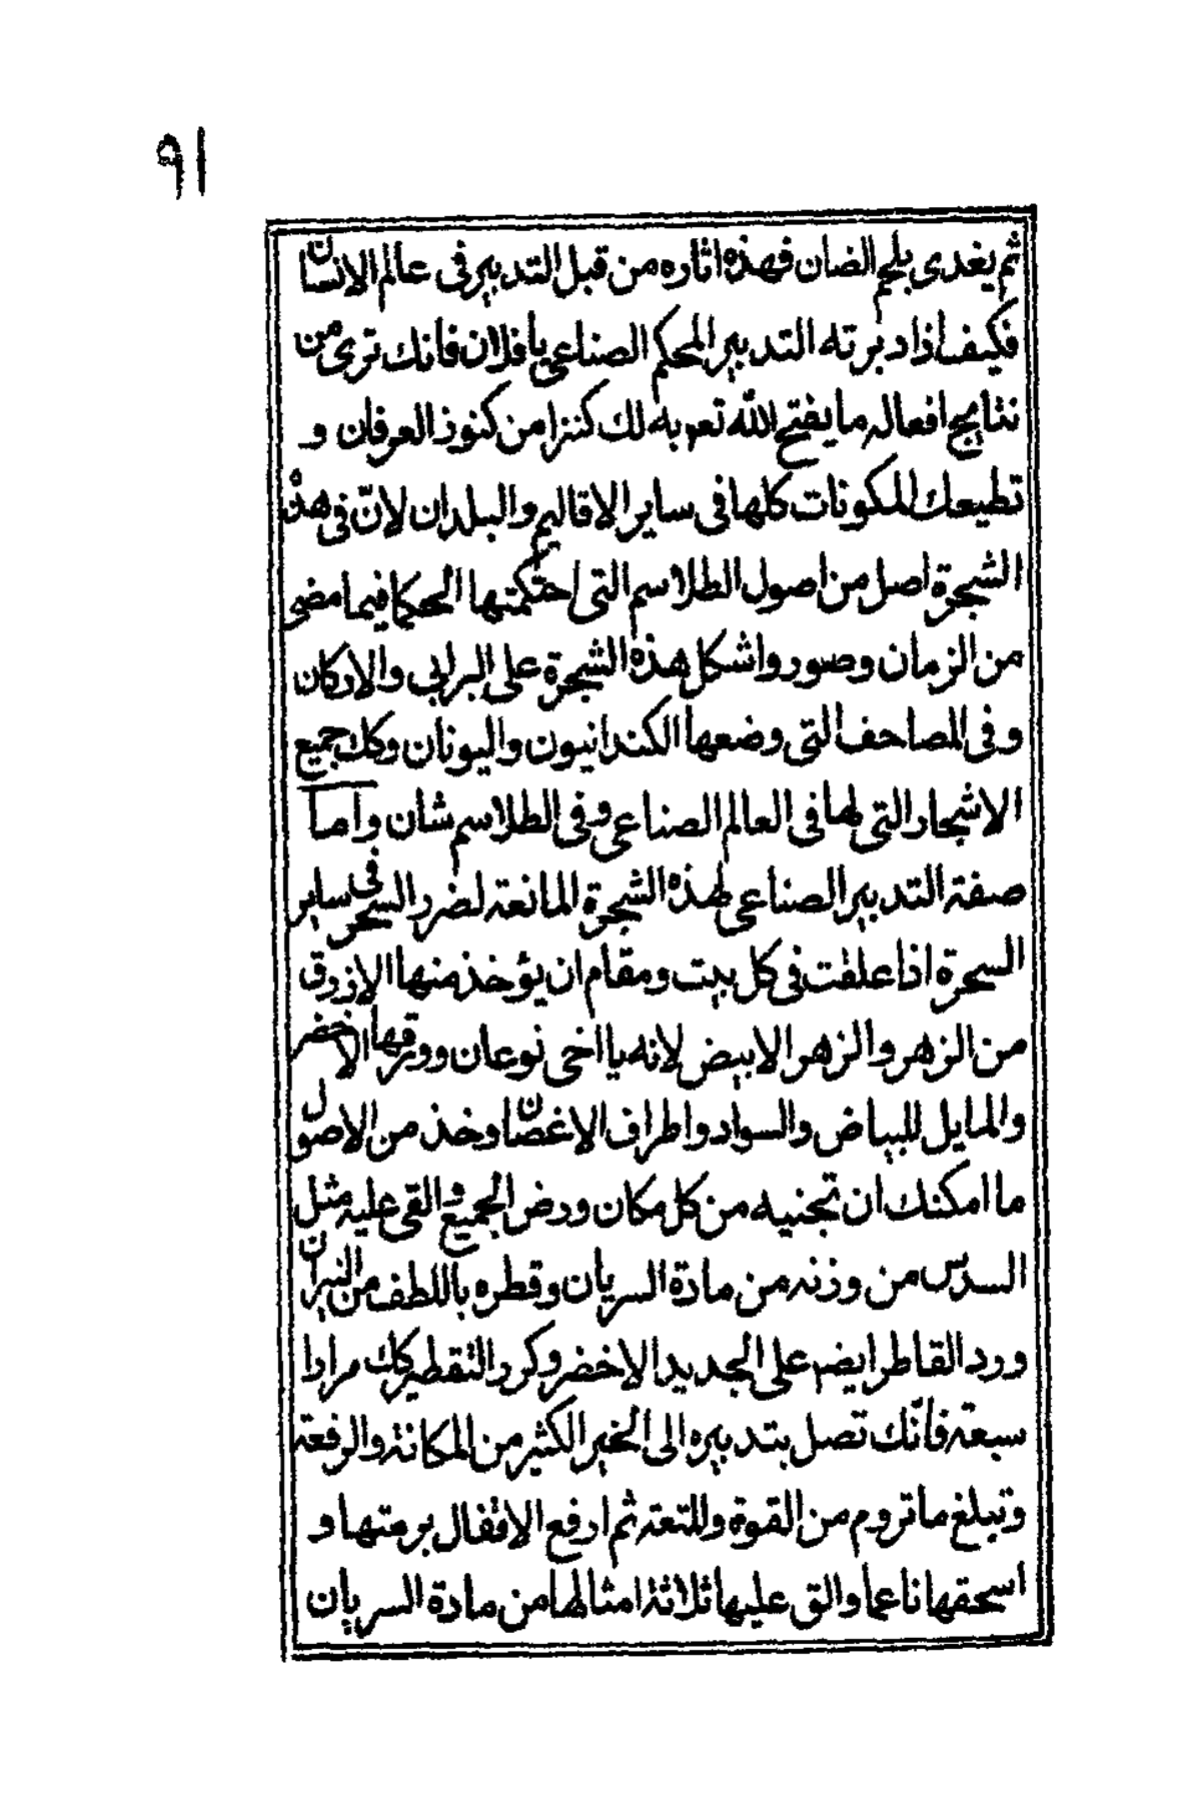 ٩١
ثم يغدى بلحم الضان فهذه اثاره من قبل التدبير فى عالم الانسان
فكيف اذا دبرته التدبير المحكم الصناعى يا فلان فانك ترى من
نتايج افعاله ما يفتح الله تعم به لك كنزا من كنوز العرفان و
تطيعك المكونات كلها فى ساير الاقاليم والبلدان لانّ فى هذه
الشجرة اصل من اصول الطلاسم التى احتكمتها الحكما فيما مضى
من الزمان وصور واشكل هذه الشجرة على البرابى والاركان
وفى المصاحف التى وضعها الكندانيون واليونان وكك جميع
الاشجار التى لها فى العالم الصناعى وفى الطلاسم شان واما
صفة التدبير الصناعى لهذه الشجرة المانعة لضرر السحر فى ساير
السحرة اذا علقت فى كل بيت ومقام ان يؤخذ منها الازرق
من الزهر والزهر الابيض لانه يا اخى نوعان وورقها الاخضر
والمايل للبياض والسواد واطراف الاغصان وخذ من الاصول
ما امكنك ان تجنيه من كل مكان ورض الجميع والقى عليه مثل
السدس من وزنه من مادة السريان وقطره باللطف من النيران
ورد القاطر ايضم على الجديد الاخضر وكرر التقطير كك مرارا
سبعة فانّك تصل بتدبيره الى الخير الكثير من المكانة والرفعة
وتبلغ ما تروم من القوة والمتعة ثم ارفع الاثفال برمتها و
اسحقها ناعما والق عليها ثلاثة امثالها من مادة السريان